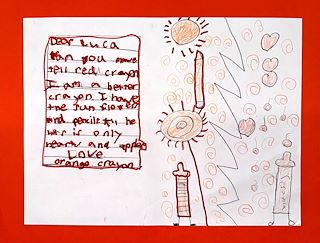 Dear Luca
can you
tell red crayon
I am a better
crayon. I have
the fun
and pencil tell he
is only
hearts and apples
Love
orange crayon